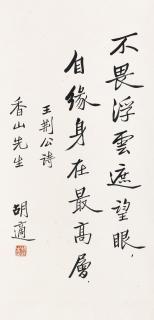 不畏浮雲遮望眼，
自緣身在最高層．
王荆公詩
香山先生
胡適